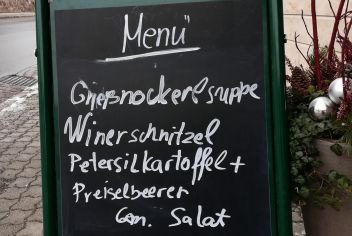 Menü
Grießnockerlsuppe
Winerschnitzel
Petersilkartoffel +
Preiselbeeren
Gem. Salat